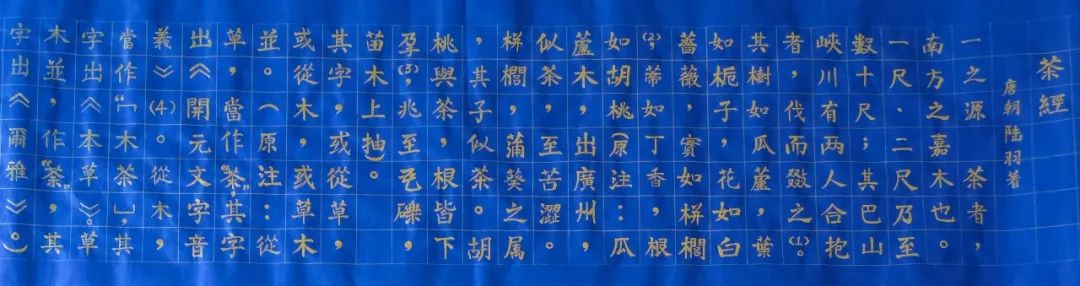 茶經
唐朝陸羽著
一之源　茶者，
南方之嘉木也。
一尺、二尺乃至
數十尺；其巴山
峽川有兩人合抱
者，伐而掇之(1)。
其樹如瓜蘆，葉
如梔子，花如白
薔薇，實如栟櫚
(2)，蒂如丁香，根
如胡桃(原注：瓜
蘆木，出廣州，
似茶，至苦澀。
栟櫚，蒲葵之属
，其子似茶。胡
桃與茶，根皆下
孕(3)，兆至瓦礫，
苗木上抽)。
其字，或從草，
或從木，或草木
並。(原注：從
草，當作“茶”其字
出《開元文字音
義》(4)。從木，
當作「木茶」，其
字出《本草》。草
木並，作“荼”，其
字出《爾雅》。)